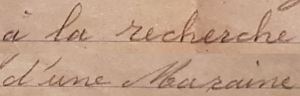 à la recherche
d'une Maraine